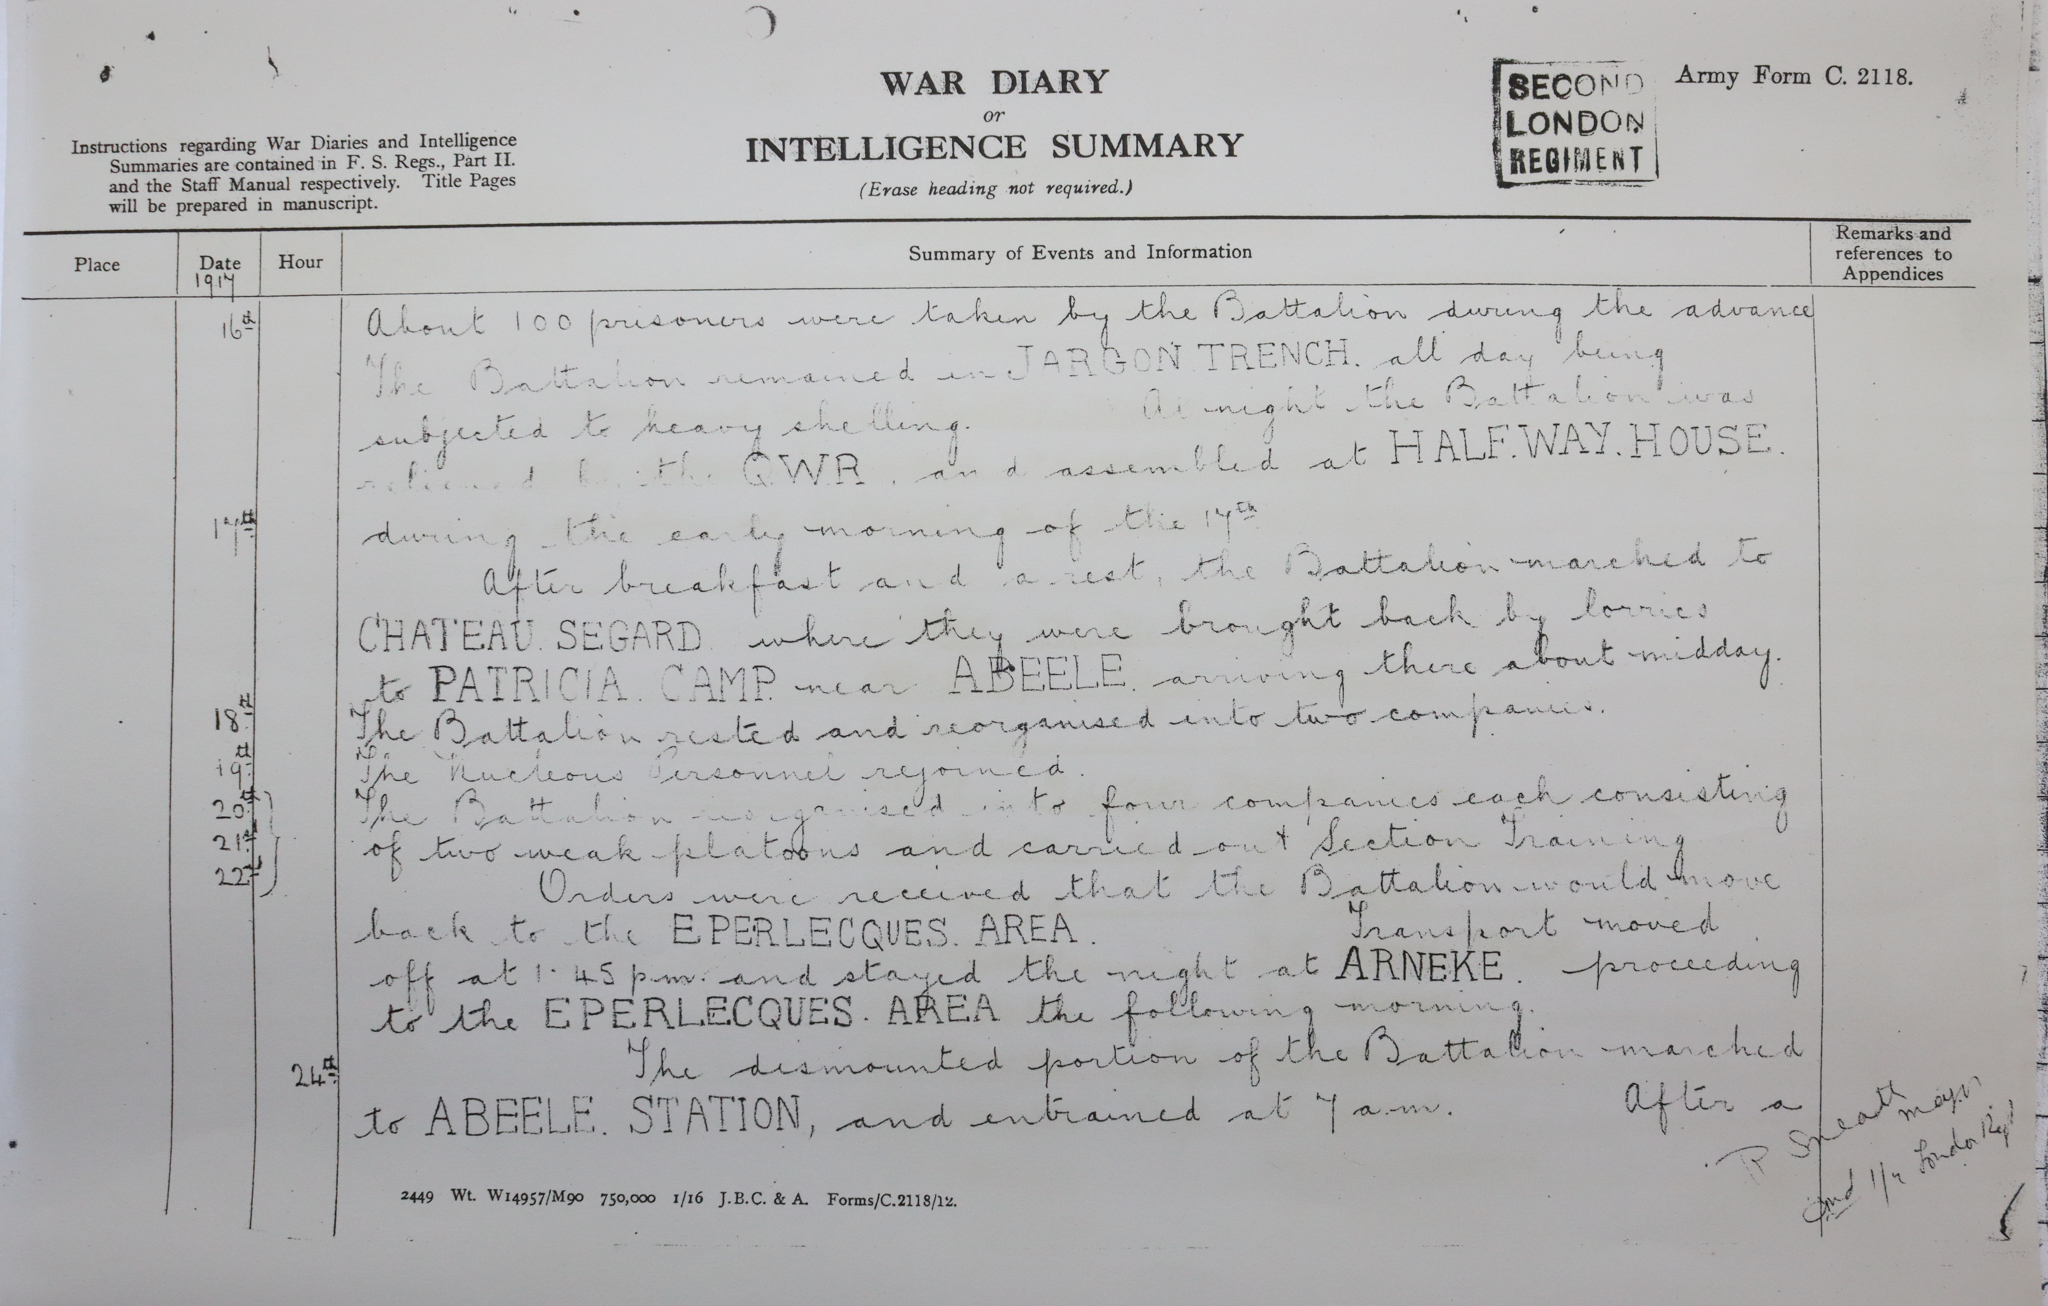 WAR DIARY
or
INTELLIGENCE SUMMARY
(Erase heading not required.)
SECOND
LONDON
REGIMENT
Army Form C. 2118.
Instructions regarding War Diaries and Intelligence
Summaries are contained in F. S. Regs., Part II.
and the Staff Manual respectively. Title Pages
will be prepared in manuscript.
Place Date Hour Summary of Events and Information Remarks and references to Appendices
1917
16th About 100 prisoners were taken by the Battalion during the advance
The Battalion remained in JARGON TRENCH. all day being
subjected to heavy shelling. At night the Battalion was
relieved by the QWR. and assembled at HALF.WAY.HOUSE.
17th during the early morning of the 17th
After breakfast and a rest, the Battalion marched to
CHATEAU. SEGARD. where they were brought back by lorries
to PATRICIA. CAMP. near ABEELE. arriving there about midday.
18th The Battalion rested and reorganised into two companies.
19th The Nucleous Personnel rejoined.
20th The Battalion reorganised into four companies each consisting
21st of two weak platoons and carried out Section Training
22nd Orders were received that the Battalion would move
back to the EPERLECQUES. AREA. Transport moved
off at 1.45 pm. and stayed the night at ARNEKE. proceeding
to the EPERLECQUES. AREA the following morning.
24th The dismounted portion of the Battalion marched
to ABEELE. STATION, and entrained at 7 a.m. After a
Major
Cmd 1/2 London Regt
2449 Wt. W14957/M90 750,000 1/16 J.B.C. & A. Forms/C.2118/12.